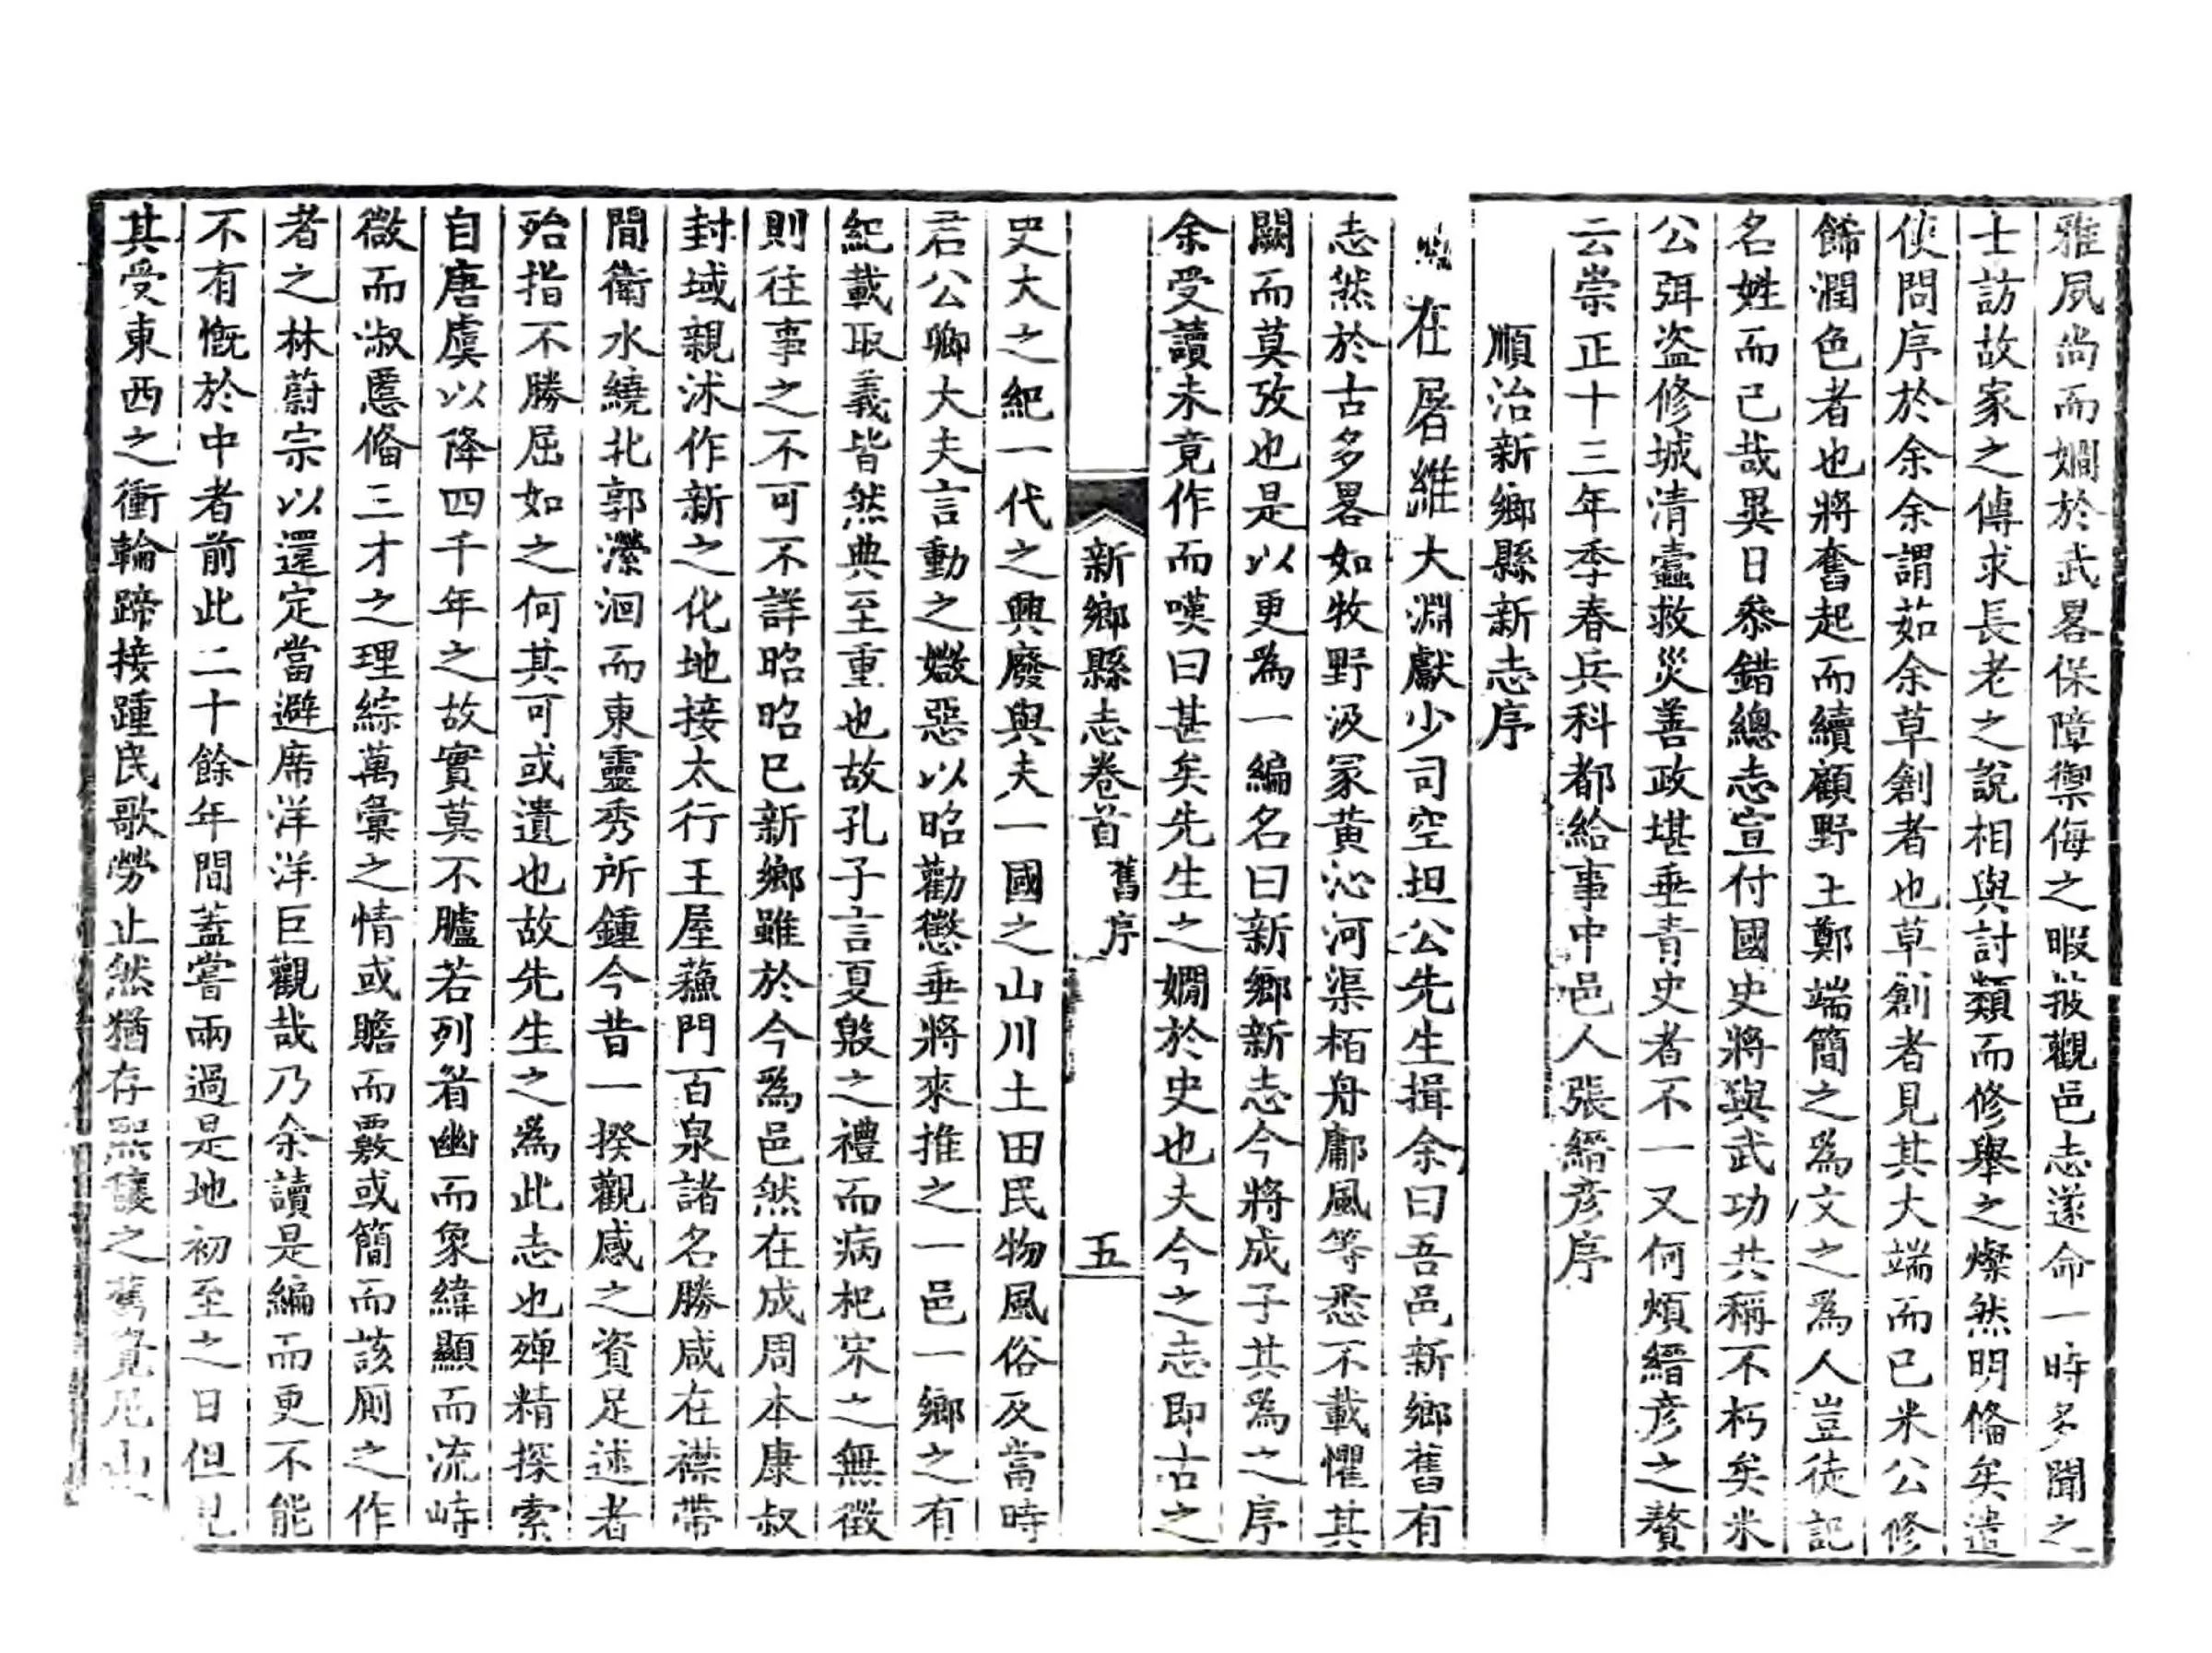 雅夙尚而嫺於武畧保障禦侮之暇披觀邑志遂命一時多聞之
士訪故家之傳求長老之說相與討類而修舉之燦然明俻矣遣
使問序於余余謂茹余草創者也草創者見其大端而已米公修
餙潤色者也將奮起而續顧野王鄭端簡之為文之為人豈徒記
名姓而已哉異日叅錯總志宣付國史將與武功共稱不朽矣米
公弭盗修城清蠧救災善政堪垂青史者不一又何煩縉彦之贅
云崇正十三年季春兵科都給事中邑人張縉彦序
順治新鄉縣新志序
在屠維大淵獻少司空坦公先生揖余曰吾邑新鄉舊有
志然於古多畧如牧野汲冢黃沁河渠栢舟鄘風等悉不載懼其
闕而莫攷也是以更爲一編名曰新鄉新志今將成子其為之序
余受讀未竟作而嘆曰甚矣先生之嫺於史也夫今之志即古之
新鄉縣志卷首 舊序 五
史大之紀一代之興廢與夫一國之山川土田民物風俗及當時
君公卿大夫言動之媺惡以昭勸懲垂將來推之一邑一鄉之有
紀載取義皆然典至重也故孔子言夏殷之禮而病杞宋之無徵
則往事之不可不詳昭昭巳新鄉雖於今爲邑然在成周本康叔
封域親沬作新之化地接太行王屋蘓門百泉諸名勝咸在襟帶
間衛水繞北郭瀠洄而東靈秀所鍾今昔一揆觀感之資足述者
殆指不勝屈如之何其可或遺也故先生之為此志也殫精探索
自唐虞以降四千年之故實莫不臚若列眉幽而象緯顯而流峙
微而淑慝俻三才之理綜萬彙之情或贍而覈或簡而該厠之作
者之林蔚宗以還定當避席洋洋巨觀哉乃余讀是編而更不能
不有慨於中者前此二十餘年間蓋嘗兩過是地初至之日但見
其受東西之衝輪蹄接踵民歌勞止然猶存熙穰之舊